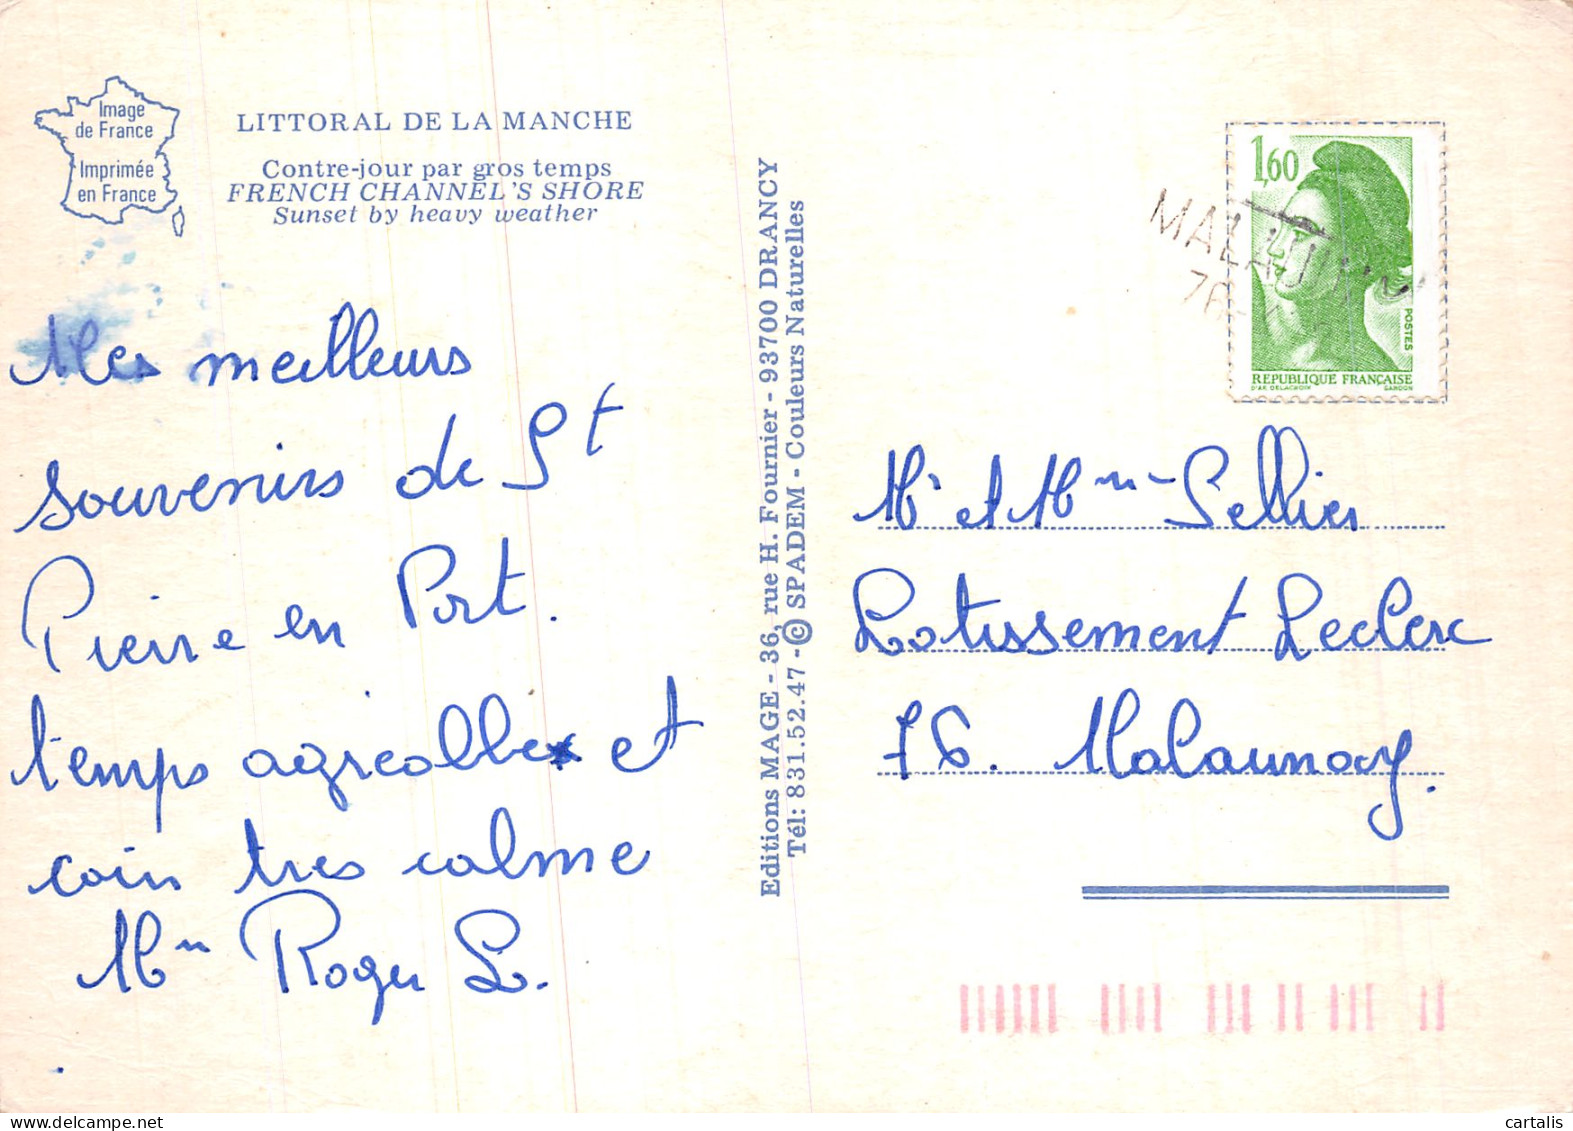 Image
de France
Imprimée
en France
LITTORAL DE LA MANCHE
Contre-jour par gros temps
FRENCH CHANNEL'S SHORE
Sunset by heavy weather
Mes meilleurs
souvenirs de St
Pierre en Port.
temps agréable et
coin tres calme
Mm Roger L.
Editions MAGE - 36, rue H. Fournier - 93700 DRANCY
Tél: 831.52.47 - © SPADEM - Couleurs Naturelles
1,60
POSTES
REPUBLIQUE FRANÇAISE
D'AP. DELACROIX GANDON
MALAUN
76
Mr et Mme Sellier
Lotissement Leclerc
76. Malaunay.
cartalis